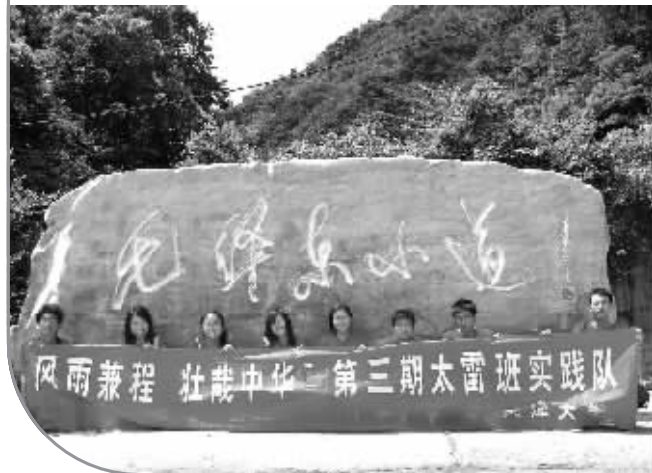 毛泽东小道
风雨兼程 壮哉中华 第三期太雷班实践队
天津大学